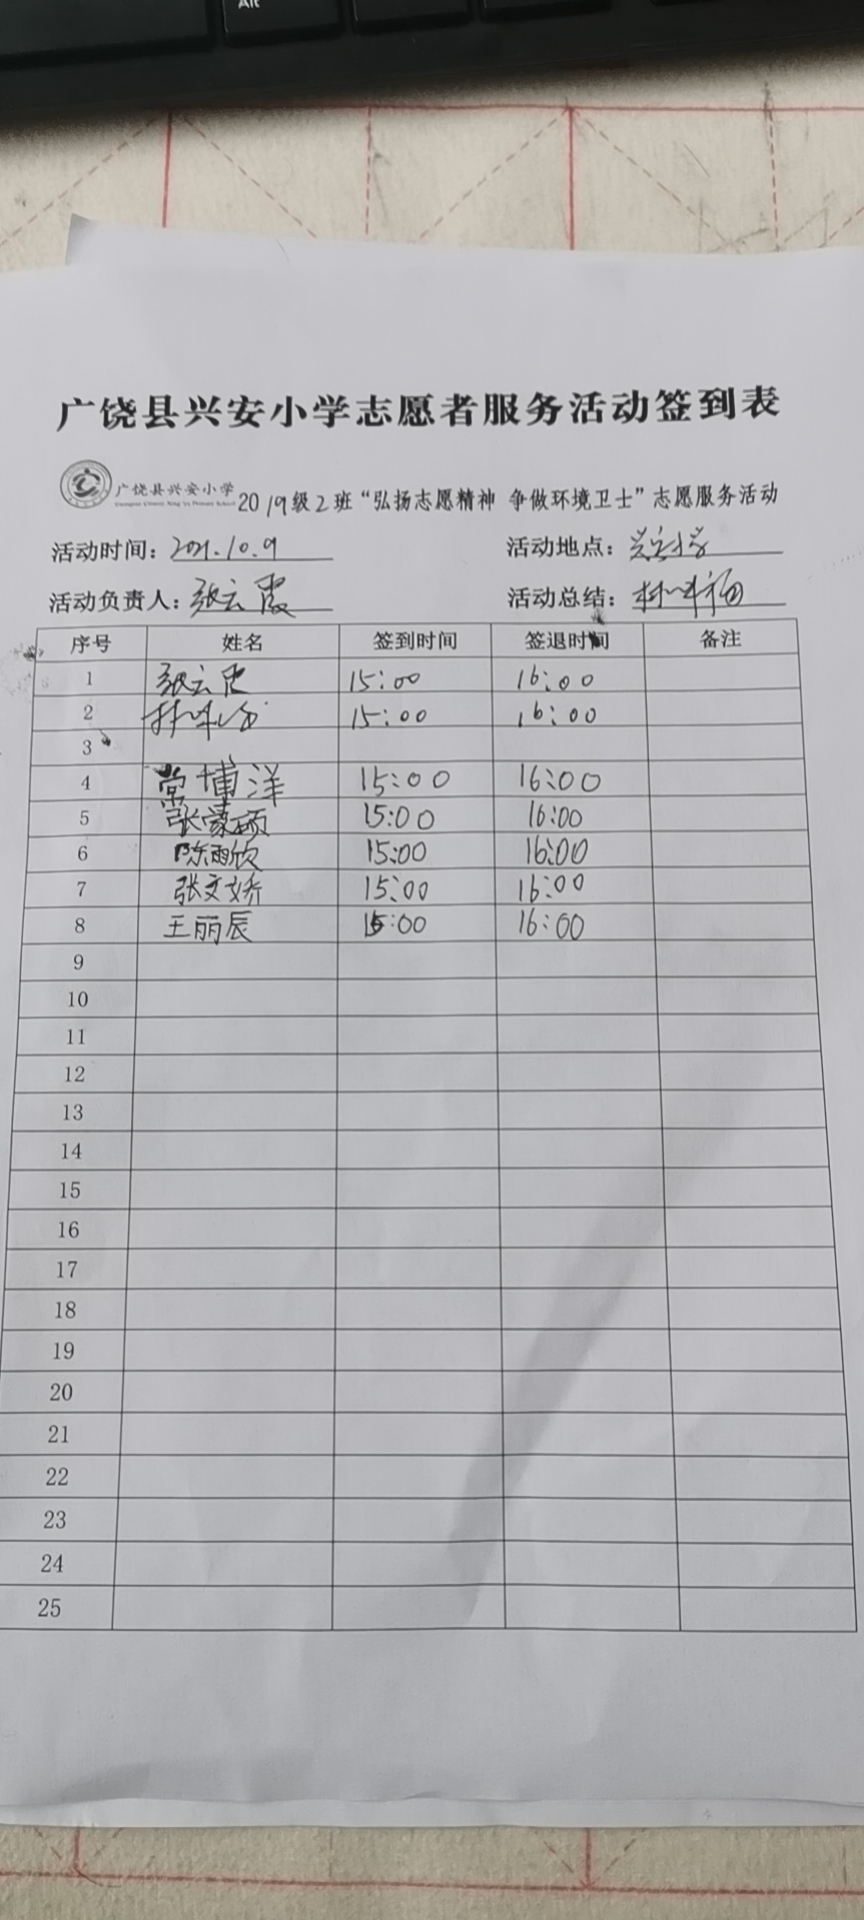 Alt
广饶县兴安小学志愿者服务活动签到表
广饶县兴安小学 2019级2班“弘扬志愿精神 争做环境卫士”志愿服务活动
活动时间：2021.10.9 活动地点：兴安小学
活动负责人：张云霞 活动总结：
序号 姓名 签到时间 签退时间 备注
1 张云霞 15:00 16:00
2 15:00 16:00
3
4 常埔洋 15:00 16:00
5 张豪硕 15:00 16:00
6 陈雨欣 15:00 16:00
7 张文娇 15:00 16:00
8 王丽辰 15:00 16:00
9
10
11
12
13
14
15
16
17
18
19
20
21
22
23
24
25